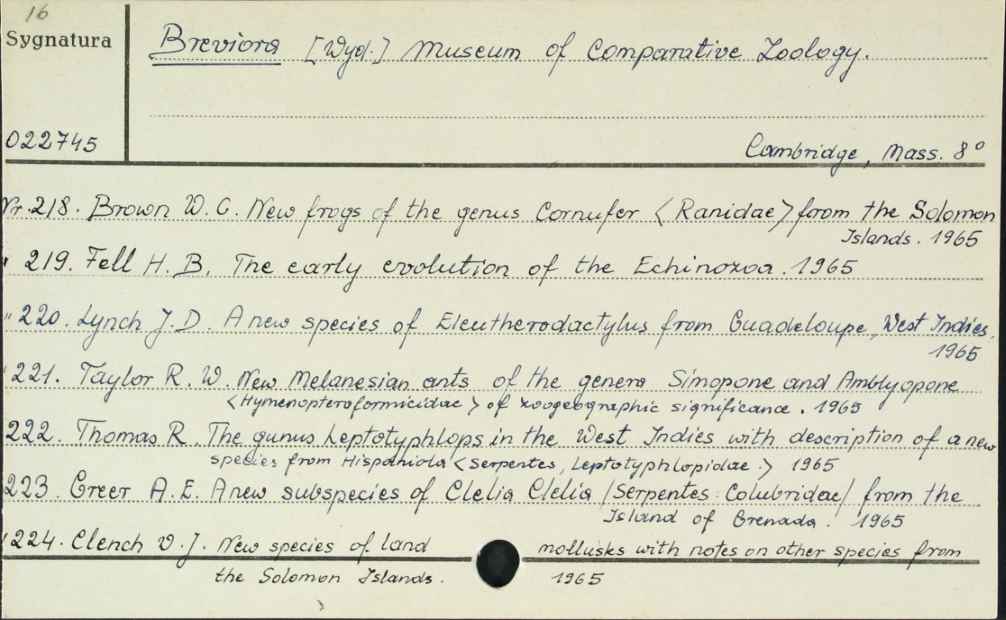 16
Sygnatura
Breviora [Wyd.] Museum of Comparative Zoology.
022745
Cambridge, Mass. 8°
Nr. 218. Brown W. C. New frogs of the genus Cornufer <Ranidae> from the Solomon
Islands. 1965
" 219. Fell H. B. The early evolution of the Echinozoa. 1965
" 220. Lynch J. D. A new species of Eleutherodactylus from Guadeloupe, West Indies.
1965
" 221. Taylor R. W. New Melanesian ants of the genera Simopone and Amblyopone
<Hymenoptera formicidae> of zoogeographic significance. 1965
222. Thomas R. The gunus Leptotyphlops in the West Indies with description of a new
species from Hispaniola <Serpentes, Leptotyphlopidae.> 1965
223. Greer A. E. A new subspecies of Clelia Clelia /Serpentes: Colubridae/ from the
Island of Grenada. 1965
224. Clench W. J. New species of land mollusks with notes on other species from
the Solomon Islands. 1965